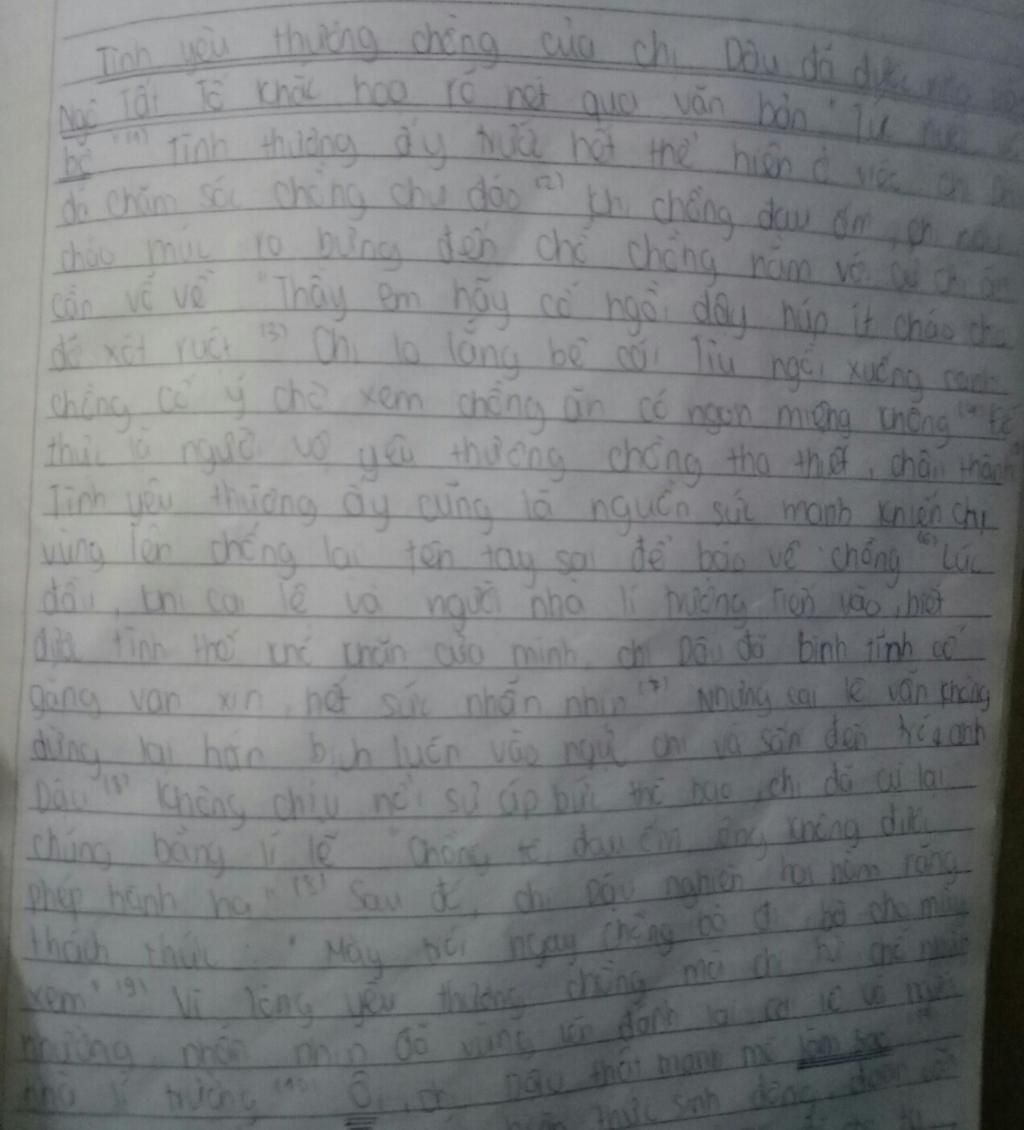 Tình yêu thương chồng của chị Dậu đã được
Ngô Tất Tố khắc hoạ rõ nét qua văn bản "Tức nước
bờ" (1) Tình thương ấy trước hết thể hiện ở việc chị
đã chăm sóc chồng chu đáo (2) Khi chồng đau ốm, chị
cháo múc ra bưng đến chỗ chồng nằm với cử chỉ ân
cần vỗ về "Thầy em hãy cố ngồi dậy húp ít cháo cho
đỡ xót ruột (3) Chị lo lắng bế cái Tỉu ngồi xuống cạnh
chồng cố ý chờ xem chồng ăn có ngon miệng không (4)
thức là người vợ yêu thương chồng tha thiết, chân thành
Tình yêu thương ấy cũng là nguồn sức mạnh khiến chị
vùng lên chống lại tên tay sai để bảo vệ chồng (6) Lúc
đầu, khi cai lệ và người nhà lí trưởng tiến vào, biết
được tình thế khó khăn của mình, chị Dậu đã bình tĩnh cố
gắng van xin, hết sức nhẫn nhịn (7) Nhưng cai lệ vẫn không
dừng lại hắn bịch luôn vào ngực chị và sấn đến trói anh
Dậu (8) Không chịu nổi sự áp bức chị đã cự lại
chúng bằng lí lẽ "Chồng tôi đau ốm ông không được
phép hành hạ" (8) Sau đó, chị Dậu nghiến hai hàm răng
thách thức: "Mày trói ngay chồng bà đi, bà cho mày
xem" (9) Vì lòng yêu thương chồng mà chị từ chỗ
nhường, nhẫn nhịn đã vùng lên đánh lại cai lệ và người
nhà lí trưởng (10) Ôi, chị Dậu thật mạnh mẽ làm sao
thực sinh động, đoạn